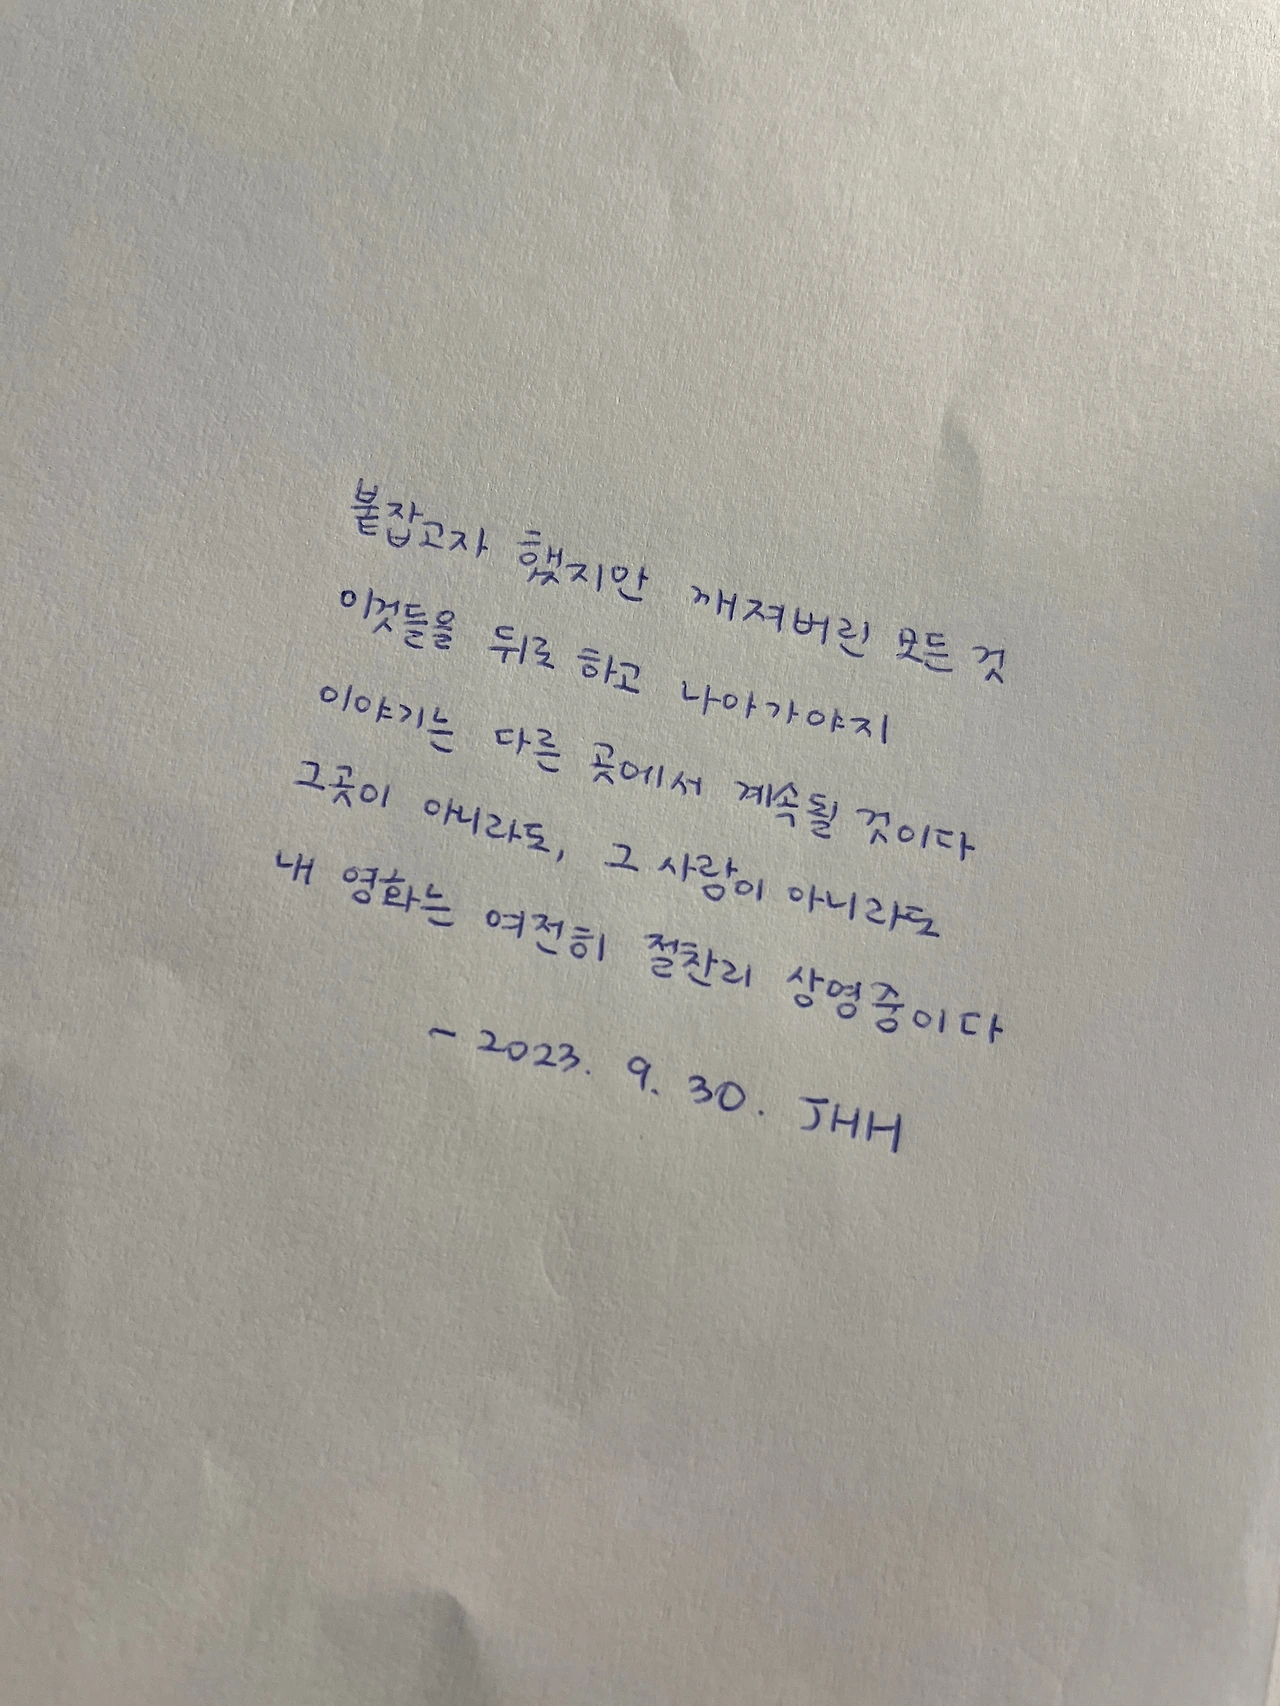 붙잡고자 했지만 깨져버린 모든 것
이것들을 뒤로 하고 나아가야지
이야기는 다른 곳에서 계속될 것이다
그곳이 아니라도, 그 사람이 아니라도
내 영화는 여전히 절찬리 상영중이다
- 2023. 9. 30. JHH